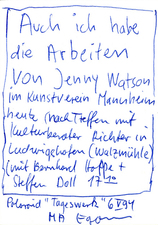 Auch ich habe
die Arbeiten
von Jenny Watson
im Kunstverein Mannheim
heute (nach Treffen mit
Kulturberater Richter in
Ludwigshafen (Walzmühle)
(mit Bernhard Hoppe +
Steffen Doll 17 10
Polaroid "Tageswerk" 6 V 94
MA